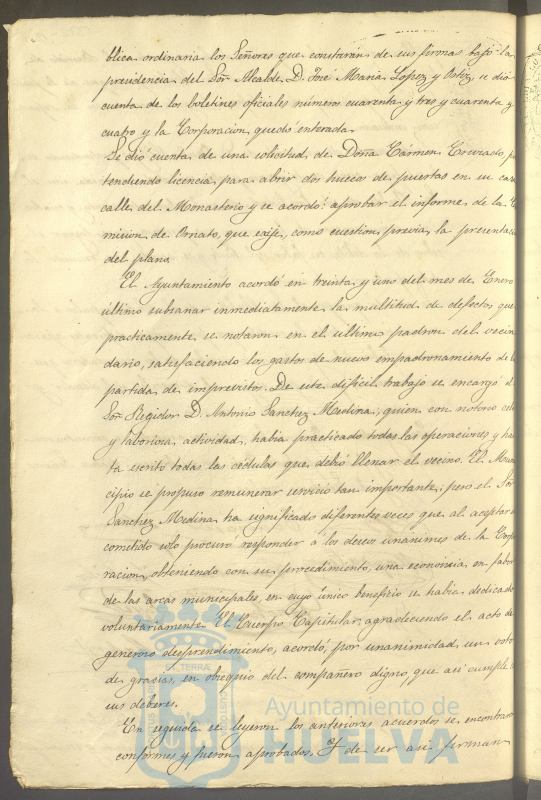 blica ordinaria los Señores que constarán de sus firmas bajo la
presidencia del Sor. Alcalde D. Jose Maria Lopez y Ortiz, se dió
cuenta de los boletines oficiales números cuarenta y tres y cuarenta y
cuatro y la Corporacion quedó enterada.
Se dió cuenta de una solicitud de Doña Carmen
tendiendo licencia para abrir dos huecos de puertas en su casa
calle del Monasterio y se acordó: aprobar el informe de la
mision de Ornato, que exije, como cuestion previa, la presentac
del plano.
El Ayuntamiento acordó en treinta y uno del mes de Enero
último subsanar inmediatamente la multitud de defectos que
practicamente se notaron en el último padron del vecin
dario, satisfaciendo los gastos de nuevo empadronamiento de la
partida de imprevistos. De este dificil trabajo se encargó el
Sor. Regidor D. Antonio Sanchez Medina, quien con notorio celo
y laboriosa actividad, habia practicado todas las operaciones y has
ta escrito todas las cédulas que debió llenar el vecino. El Muni
cipio se propuso remunerar servicio tan importante; pero el Sor.
Sanchez Medina ha significado diferentes veces que al aceptar
cometido solo procuró responder á los deseos unanimes de la Corpo
racion, obteniendo con su procedimiento una economia en fabor
de las arcas municipales, en cuyo único beneficio se habia dedicado
voluntariamente. El Cuerpo Capitular, agradeciendo el acto de
generoso desprendimiento, acordó, por unanimidad, un voto
de gracias, en obsequio del compañero digno, que asi cumple
sus deberes.
En seguida se leyeron los anteriores acuerdos se encontraron
conformes y fueron aprobados. Y de ser asi firman
ET TERRAE
Ayuntamiento de
HUELVA